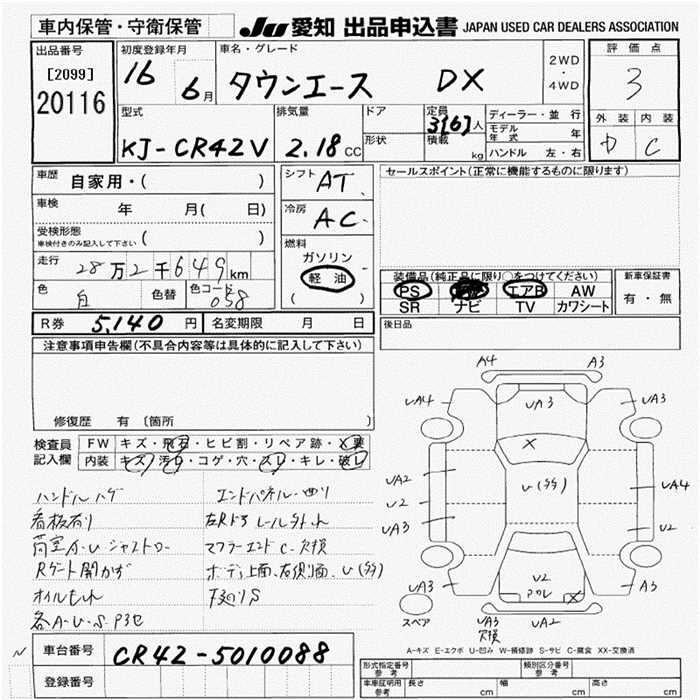 車内保管・守衛保管
JU 愛知 出品申込書 JAPAN USED CAR DEALERS ASSOCIATION
出品番号
[2099]
20116
初度登録年月
16 6月
車名・グレード
タウンエース DX
2WD
・
4WD
評価点
3
外装 内装
D C
型式
KJ-CR42V
排気量
2.18cc
ドア
形状
定員
3[6]人
積載
kg
ディーラー・並行
モデル年式 年
ハンドル 左・右
車歴
自家用・( )
車検
年 月( 日)
受検形態
車検付きのみ記入して下さい
( )
走行
28万2千649km
色
白
色替
色コード
058
シフト
AT
冷房
AC
燃料
ガソリン
軽油
( )
セールスポイント(正常に機能するものに限ります)
装備品(純正品に限り○をつけてください)
PS エアB AW
SR ナビ TV カワシート
新車保証書
有・無
R券 5,140円
名変期限 月 日
後日品
注意事項申告欄(不具合内容等は具体的に記入して下さい)
修復歴 有 〔箇所 〕
検査員記入欄
FW キズ・飛石・ヒビ割・リペア跡・X要
内装 キズ・汚れ・コゲ・穴・スレ・キレ・破レ
ハンドルハゲ
看板有り
荷室A・U ジャストロー
Rゲート開かず
オイルもれ
各A・U・S・P3セ
エンドパネル一凹り
左Rドラレール外れ
マフラーエンドC・欠損
ボディ上面、右側面、U(多)
下廻りS
A4 A3
UA4 UA3 UA3
X
UA2
U2
UA3
U(多)
UA4
U2
U2
X
UA3 A3
スペア
UA3
欠損
UA2
A-キズ E-エクボ U-凹み W-補修跡 S-サビ C-腐食 XX-交換済
車台番号 CR42-5010088
登録番号
形式指定番号
参考
類別区分番号
車庫証明用
参考
長さ cm
幅 cm
高さ cm